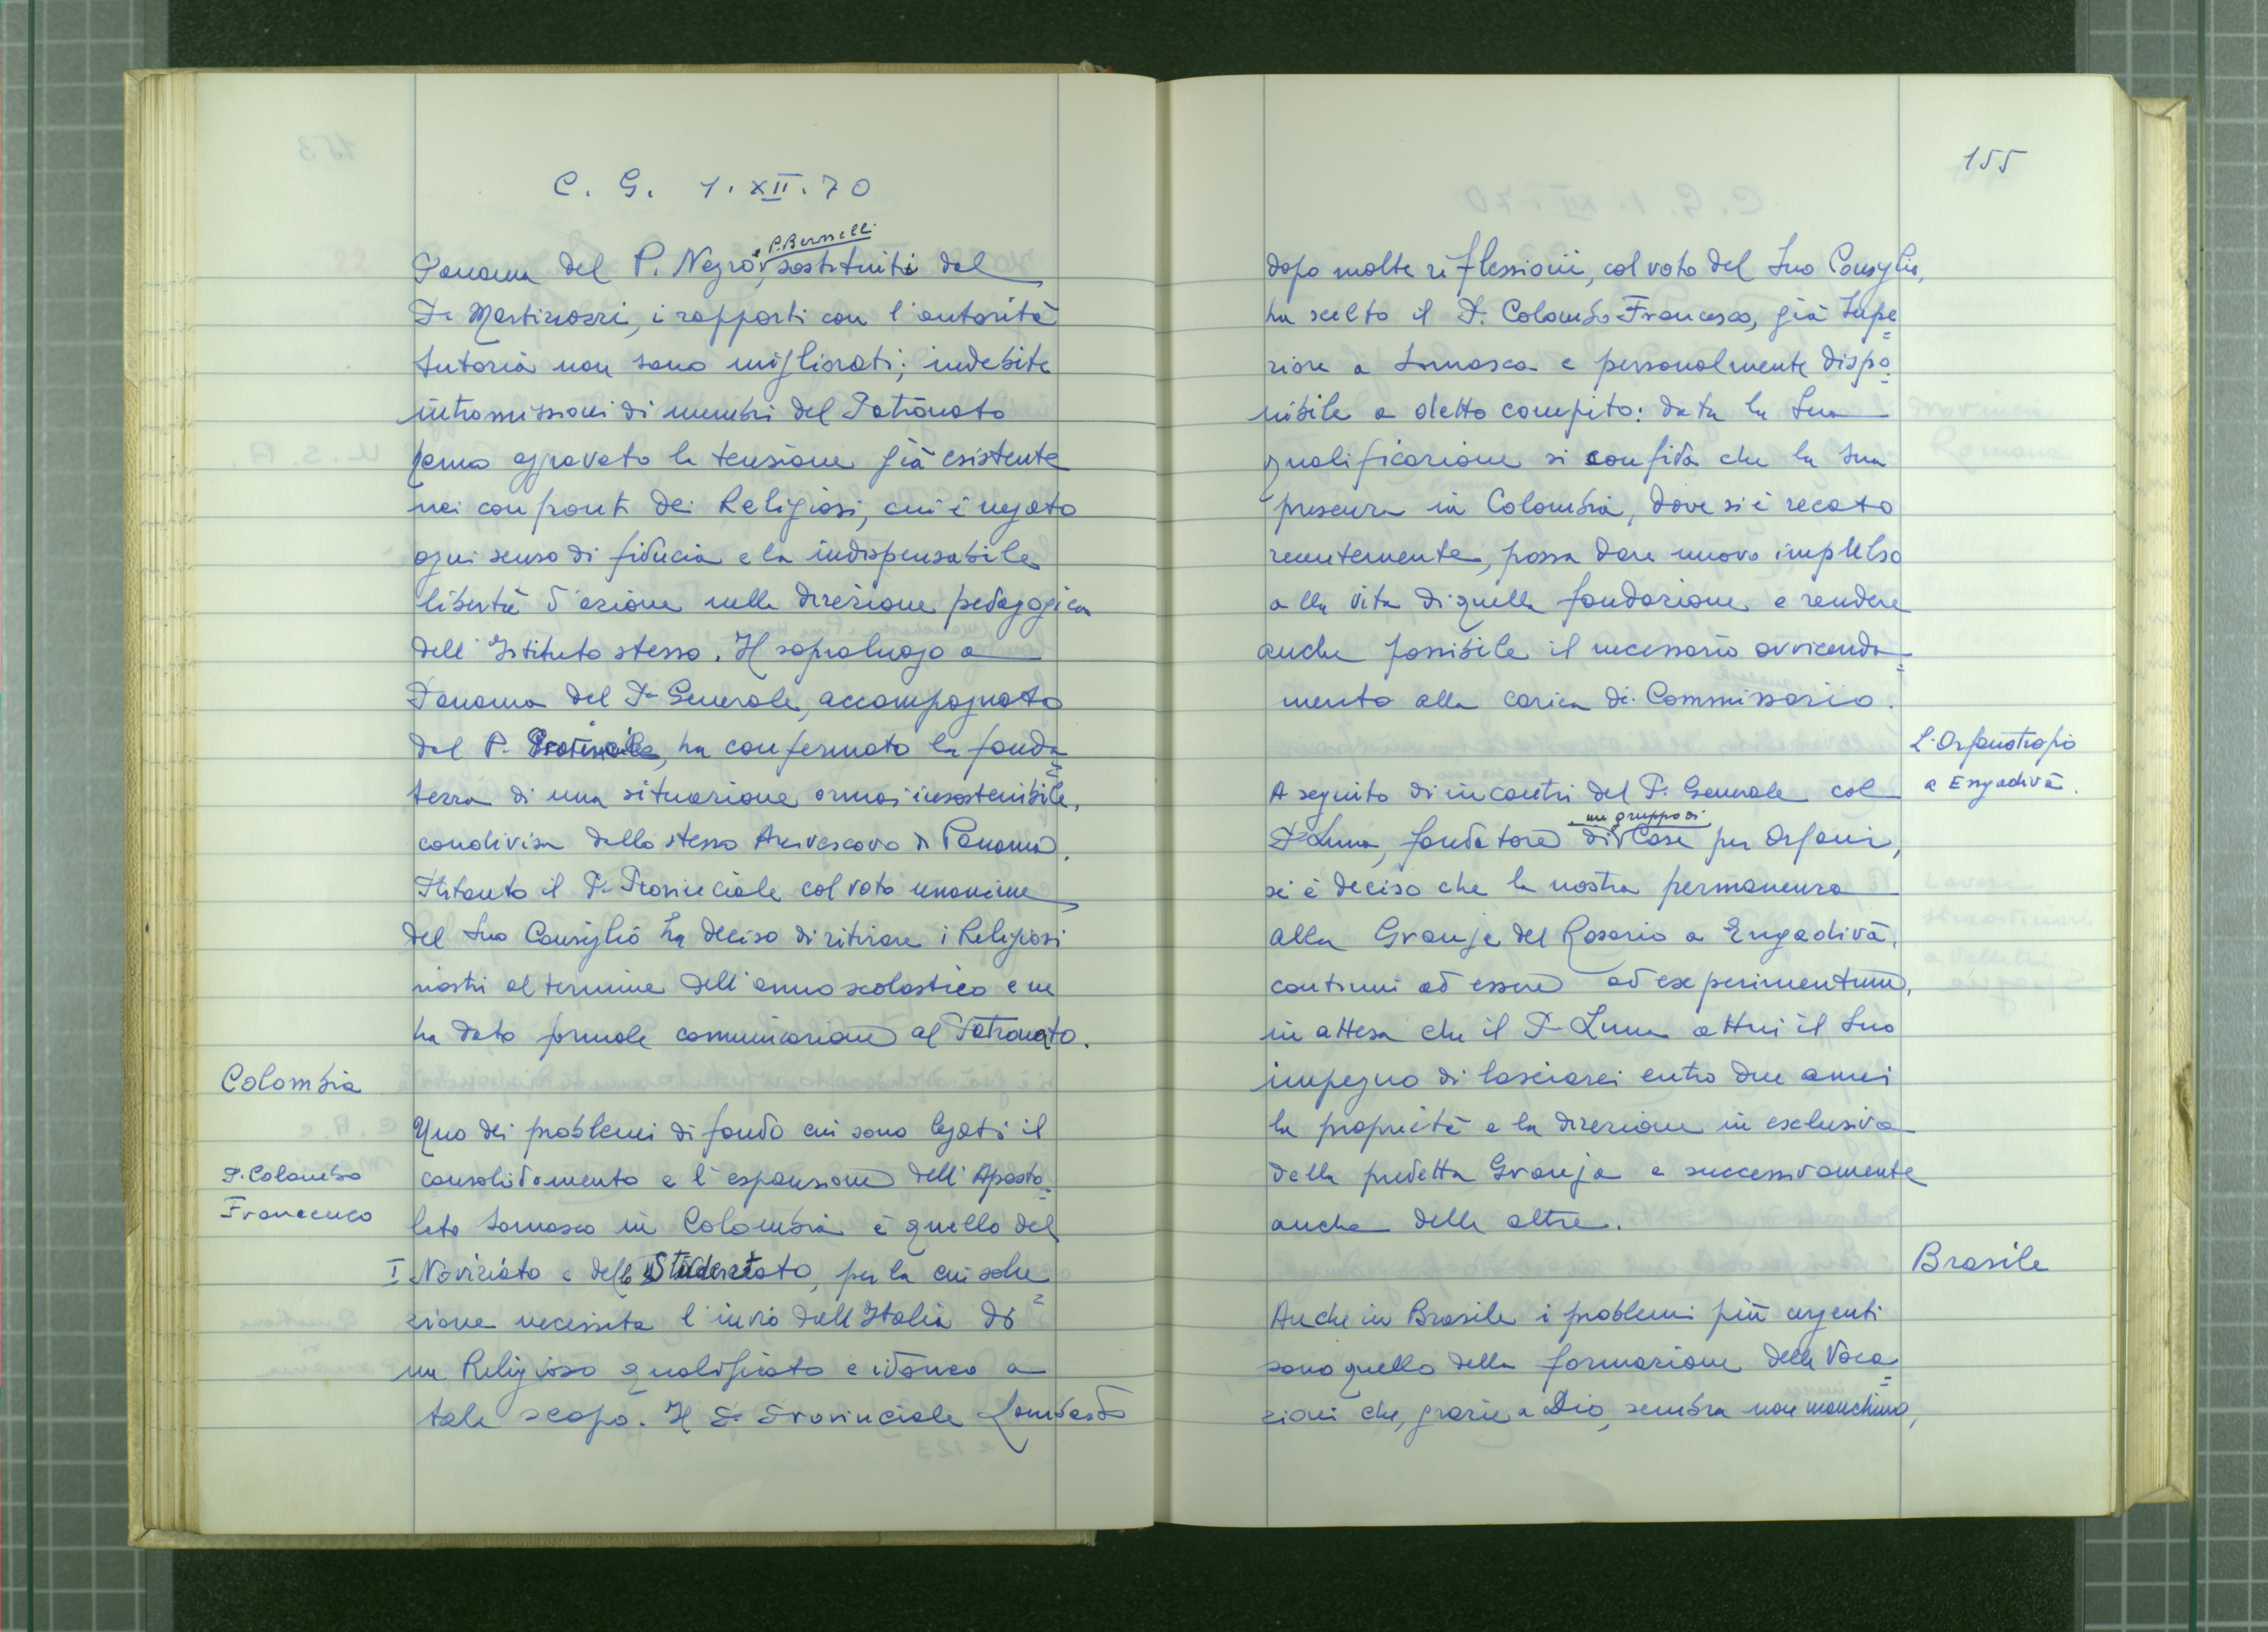 C. G. 1.XII.70
Panama del P. Negro, e P. Bernelli sostituiti dal
P. Martinozzi, i rapporti con l'autorità
tutoria non sono migliorati; indebite
intromissioni di membri del Patronato
hanno aggravato la tensione già esistente
nei confronti dei Religiosi, cui è negato
ogni senso di fiducia e la indispensabile
libertà d'azione nella direzione pedagogica
dell'Istituto stesso. Il sopraluogo a
Panama del P. Generale, accompagnato
dal P. Provinciale, ha confermato la fonda=
tezza di una situazione ormai insostenibile,
condivisa dallo stesso Arcivescovo di Panamà.
Intanto il P. Provinciale col voto unanime
del Suo Consiglio ha deciso di ritirare i Religiosi
nostri al termine dell'anno scolastico e ne
ha dato formale comunicazione al Patronato.
Colombia
Uno dei problemi di fondo cui sono legati il
P. Colombo
consolidamento e l'espansione dell'Aposto=
Francesco
lato Somasco in Colombia è quello del
I Noviziato e dello Studentato, per la cui solu=
zione necessita l'invio dall'Italia di
un Religioso qualificato e idoneo a
tale scopo. Il P. Provinciale Lombardo
155
dopo molte riflessioni, col voto del Suo Consiglio,
ha scelto il P. Colombo Francesco, già Supe=
riore a Somasca e personalmente dispo=
nibile a detto compito: data la Sua
qualificazione si confida che la sua
presenza in Colombia, dove si è recato
recentemente, possa dare nuovo impulso
alla vita di quella fondazione e rendere
anche possibile il necessario avvicenda=
mento alla carica di Commissario.
L'Orfanotrofio
a Engadivà.
A seguito di incontri del P. Generale col
P. Luna, fondatore di un gruppo di Case per Orfani,
si è deciso che la nostra permanenza
alla Granja del Rosario a Engadivà,
continui ad essere ad experimentum,
in attesa che il P. Luna attui il Suo
impegno di lasciarci entro due anni
la proprietà e la direzione in esclusiva
della predetta Granja e successivamente
anche delle altre.
Brasile
Anche in Brasile i problemi più urgenti
sono quello della formazione delle Voca=
zioni che, grazie a Dio, sembra non manchino,